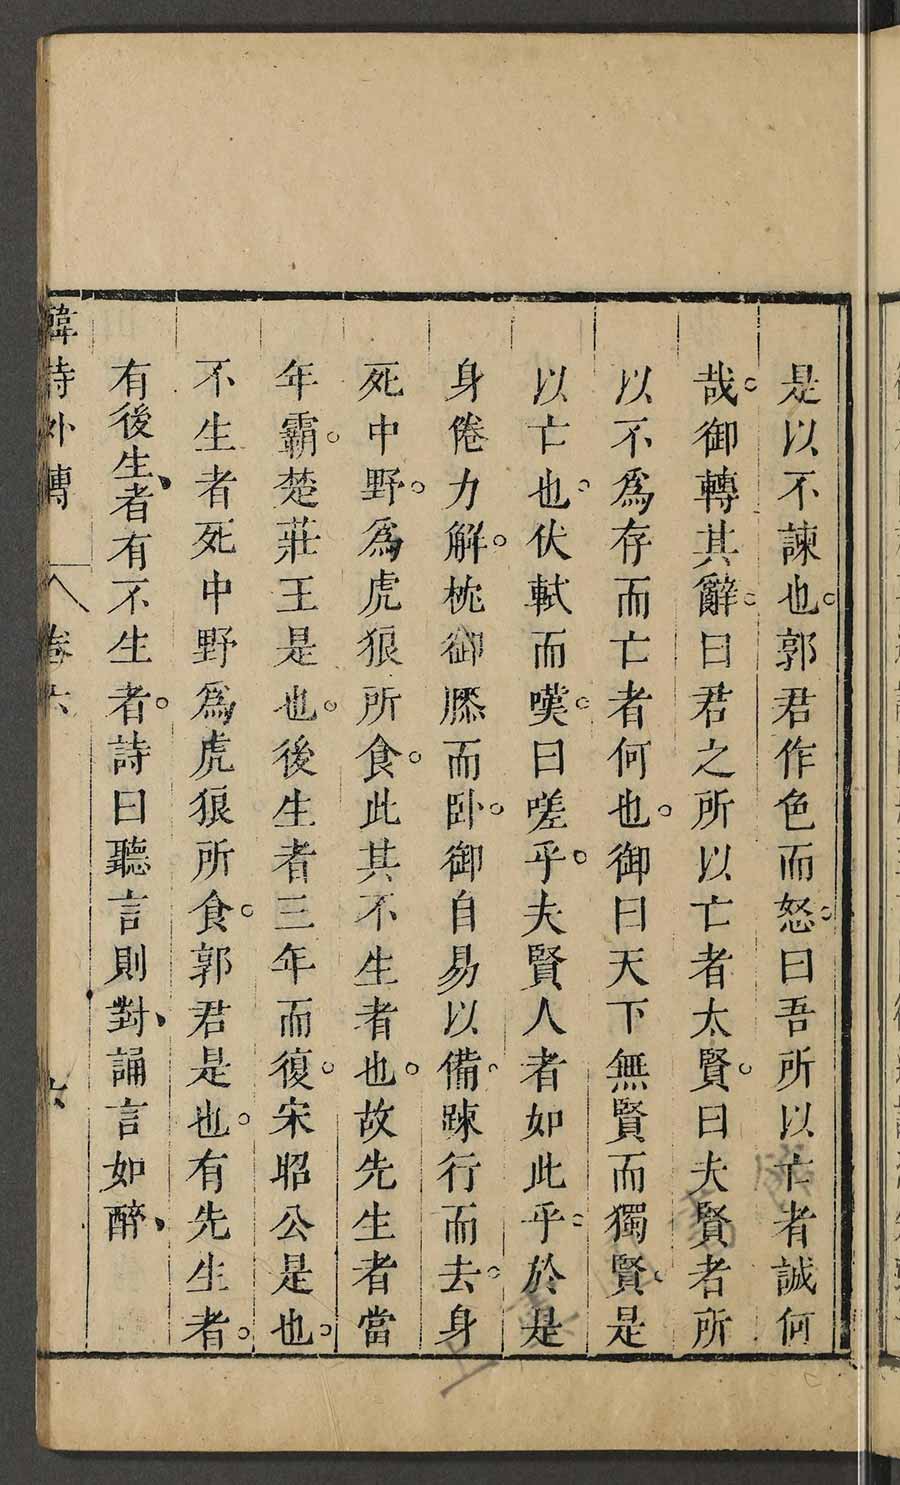 是以不諫也郭君作色而怒曰吾所以亡者誠何
哉御轉其辭曰君之所以亡者太賢曰夫賢者所
以不爲存而亡者何也御曰天下無賢而獨賢是
以亡也伏軾而嘆曰嗟乎夫賢人者如此乎於是
身倦力解枕御膝而卧御自易以備踈行而去身
死中野爲虎狼所食此其不生者也故先生者當
年霸楚莊王是也後生者三年而復宋昭公是也
不生者死中野爲虎狼所食郭君是也有先生者
有後生者有不生者詩曰聽言則對誦言如醉
韓詩外傳 卷六